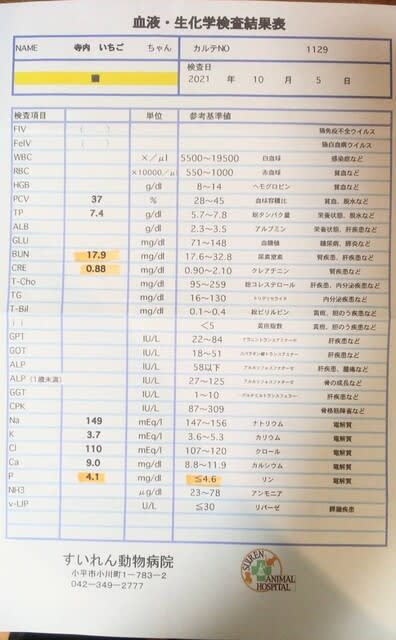 血液・生化学検査結果表
NAME 寺内 いちご ちゃん カルテNO 1129
検査日
2021 年 10 月 5 日
検査項目 単位 参考基準値
FIV ( ) 猫免疫不全ウイルス
FeIV ( ) 猫白血病ウイルス
WBC ×/μl 5500〜19500 白血球 感染症など
RBC ×10000/μl 550〜1000 赤血球 貧血など
HGB g/dl 8〜14 ヘモグロビン 貧血など
PCV 37 % 28〜45 血球容積比 貧血、脱水など
TP 7.4 g/dl 5.7〜7.8 総タンパク量 栄養状態、脱水など
ALB g/dl 2.3〜3.5 アルブミン 栄養状態、肝疾患など
GLU mg/dl 71〜148 血糖値 糖尿病、膵炎など
BUN 17.9 mg/dl 17.6〜32.8 尿素窒素 腎疾患、肝疾患など
CRE 0.88 mg/dl 0.90〜2.10 クレアチニン 腎疾患など
T-Cho mg/dl 95〜259 総コレステロール 肝疾患、内分泌疾患など
TG mg/dl 16〜130 トリグリセライド 内分泌疾患など
T-Bil mg/dl 0.1〜0.4 総ビリルビン 黄疸、胆のう疾患など
<5 黄疸指数 黄疸、胆のう疾患など
GPT IU/L 22〜84 肝疾患など
GOT IU/L 18〜51 肝疾患など
ALP IU/L 58以下 アルカリフォスファターゼ 肝疾患、腫瘍など
ALP(1歳未満) IU/L 27〜125 アルカリフォスファターゼ 骨の成長など
GGT IU/L 1〜10 肝疾患など
CPK IU/L 87〜309 骨格筋障害など
Na 149 mEq/l 147〜156 ナトリウム 電解質
K 3.7 mEq/l 3.6〜5.3 カリウム 電解質
Cl 110 mEq/l 107〜120 クロール 電解質
Ca 9.0 mg/dl 8.8〜11.9 カルシウム 電解質
P 4.1 mg/dl ≦4.6 リン 電解質
NH3 μg/dl 23〜78 アンモニア
v-LIP U/L ≦30 リパーゼ 膵臓疾患
すいれん動物病院
小平市小川町1-783-2
042-349-2777
SUIREN
ANIMAL
HOSPITAL